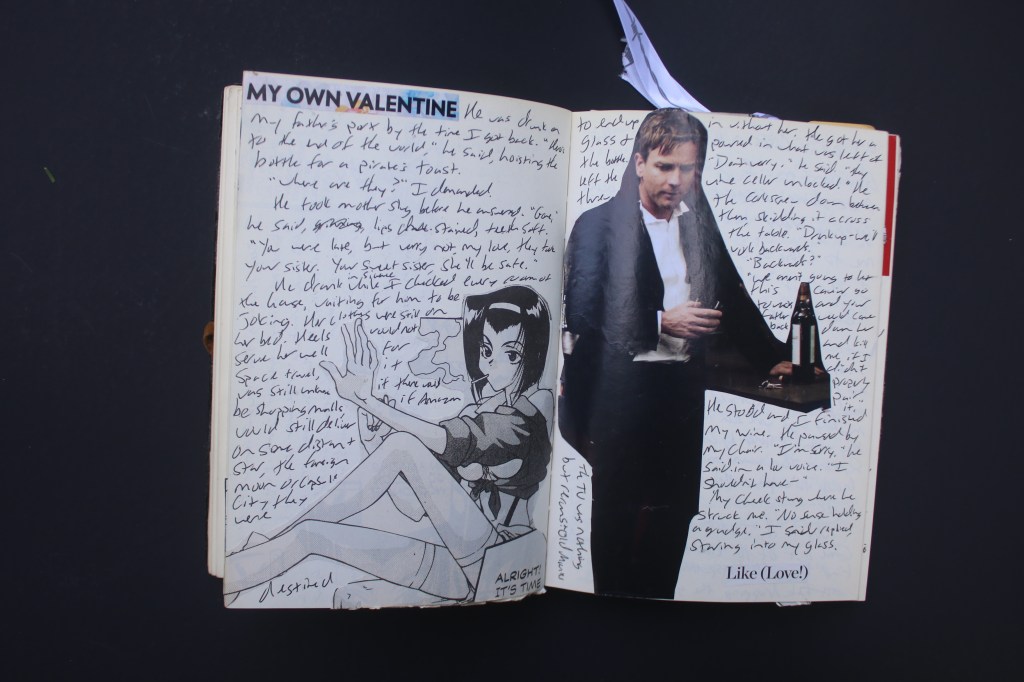 MY OWN VALENTINE He was drunk on
my father's port by the time I got back. "Here's
to the end of the world," he said, hoisting the
bottle for a pirate's toast.
"Where are they?" I demanded.
He took another slug before he answered. "Gone,"
he said, lips stained, teeth soft.
"You were late, but worry not my love, they took
your sister. Your sweet sister, she'll be safe."
He drank while I checked every room of
the house, waiting for him to be
joking. Her clothes were still on
her bed. Heels would not
serve her well for
space travel, it
was still unclear if there would
be shopping malls, if Amazon
would still deliver
on some distant
star, the foreign
moon or capsule
city they
were
destined
ALRIGHT!
IT'S TIME
to end up in without her. He got her a
glass & poured in what was left of
the bottle. "Don't worry," he said. "They
left the wine cellar unlocked." He
threw the corkscrew down between
them skidding it across
the table. "Drink up-we'll
work backwards."
"Backwards?"
"We aren't going to let
this
and your
father would come
back down here
and kill
me if I
didn't
properly
pair
it."
He stood and I finished
my wine. He paused by
my chair. "I'm sorry," he
said in a low voice. "I
shouldn't have—"
My cheek stung where he
struck me. "No sense holding
a grudge." I said replied,
staring into my glass.
The TV was nothing
but reruns
Like (Love!)